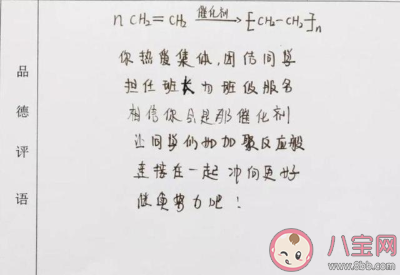 nCH₂=CH₂ 催化剂→ [CH₂-CH₂]n
品德评语
你热爱集体,团结同学
担任班长为班级服务
相信你会是那催化剂
让同学们如加聚反应般
连接在一起 冲向更好
继续努力吧!
八宝网
www.8bb.com